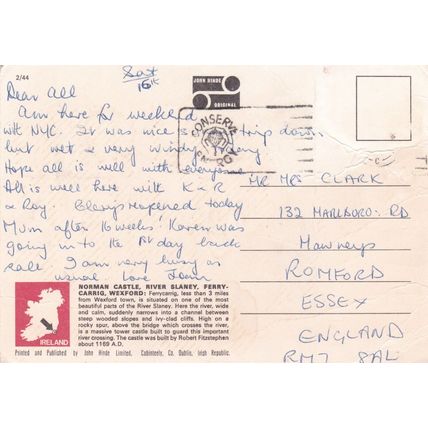 2/44
Sat
16th
JOHN HINDE
ORIGINAL
CONSERVE
ENERGY
Dear All
Am here for weekend
with NYC. It was nice trip down
but wet & very windy
Hope all is well with everyone
All is well here with K & R
& Roy. reopened today
Mum after 16 weeks! Karen was
going in to the 1st day back
sale I am very busy as
usual Love
MR MRS CLARK
132 MARLBORO. RD
ROMFORD
ESSEX
ENGLAND
RM7 8AL
NORMAN CASTLE, RIVER SLANEY, FERRY-
CARRIG, WEXFORD: Ferrycarrig, less than 3 miles
from Wexford town, is situated on one of the most
beautiful parts of the River Slaney. Here the river, wide
and calm, suddenly narrows into a channel between
steep wooded slopes and ivy-clad cliffs. High on a
rocky spur, above the bridge which crosses the river,
is a massive tower castle built to guard this important
river crossing. The castle was built by Robert Fitzstephen
about 1169 A.D.
IRELAND
Printed and Published by John Hinde Limited, Cabinteely, Co. Dublin, Irish Republic.